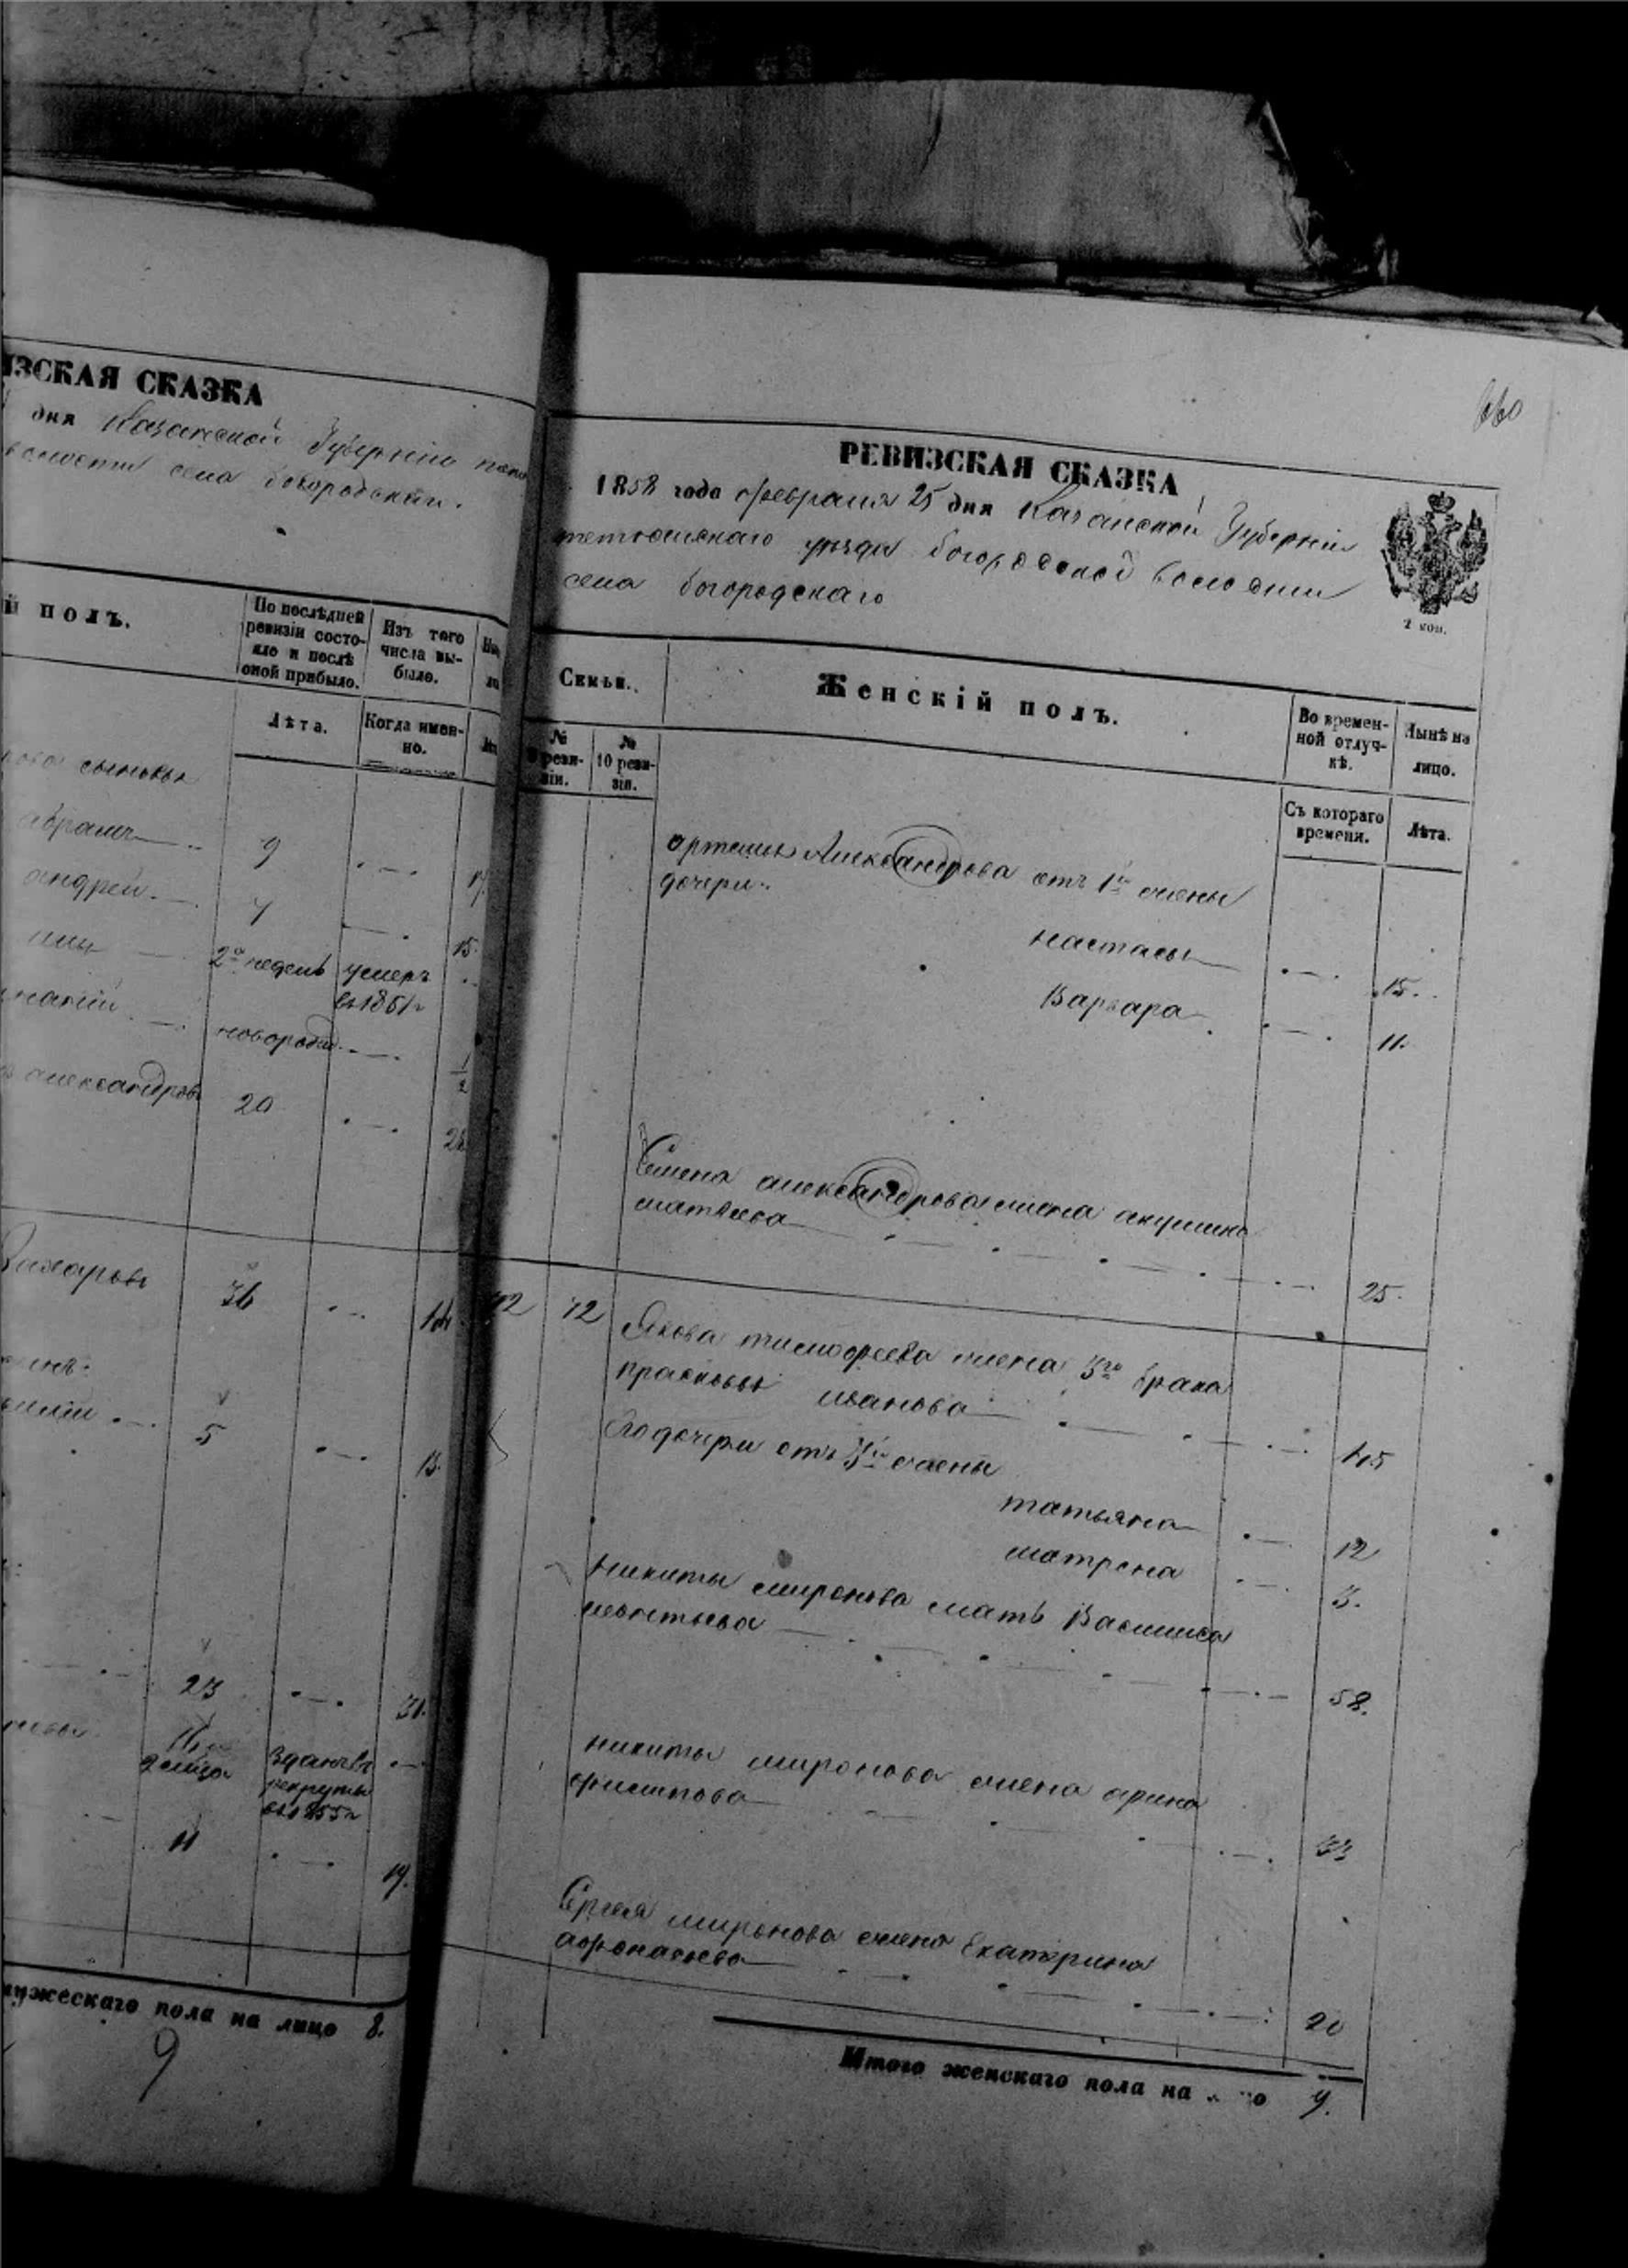 ИЗСКАЯ СКАЗКА
дня Казанской Губернiи
села богородскаго.
й полъ.
По послѣдней ревизiи состояло и послѣ оной прибыло.
Изъ того числа выбыло.
Лѣта.
Когда именно.
сыновья
абрамъ 9
андрей 7 15.
2хъ недель умеръ въ 1851г
новорожд. 1/2
александровъ 20 28
Захаровъ 36 44
5 13.
23 31.
зданъ въ рекруты въ 1855г
11 19.
мужескаго пола на лицо 8.
9
660
РЕВИЗСКАЯ СКАЗКА
1858 года февраля 25 дня Казанской Губернiи
тетюшскаго уѣзда богородской волости
села богородскаго
2 коп.
Семьи.
Женскiй полъ.
Во временной отлучкѣ.
Нынѣ на лицо.
№ ревизiи.
№ 10 ревизiи.
Съ котораго времени.
Лѣта.
Александрова отъ 1й жены
дочери:
настасья 15.
Варвара 11.
Семена александрова жена акулина
матвеева 25.
42 42 Якова тимофеева жена 3го брака
прасковья иванова 45
Его дочери отъ 3й жены
татьяна 12
матрена 3.
никиты миронова мать Василиса
леонтьева 58.
никиты миронова жена арина
филипова 33
Сергея миронова жена Екатерина
афонасьева 20
Итого женскаго пола на лицо 9.